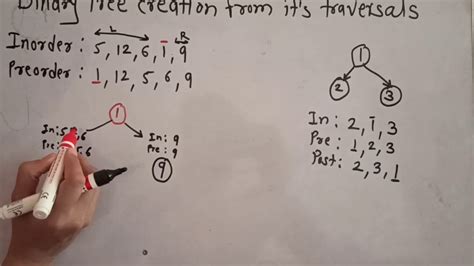 Binary Tree creation from it's traversals
L R
Inorder : 5, 12, 6, 1, 9
Preorder : 1, 12, 5, 6, 9
1
2 3
1
In: 5, 6
Pre: 6
In: 9
Pre: 9
9
In: 2, 1, 3
Pre: 1, 2, 3
Post: 2, 3, 1